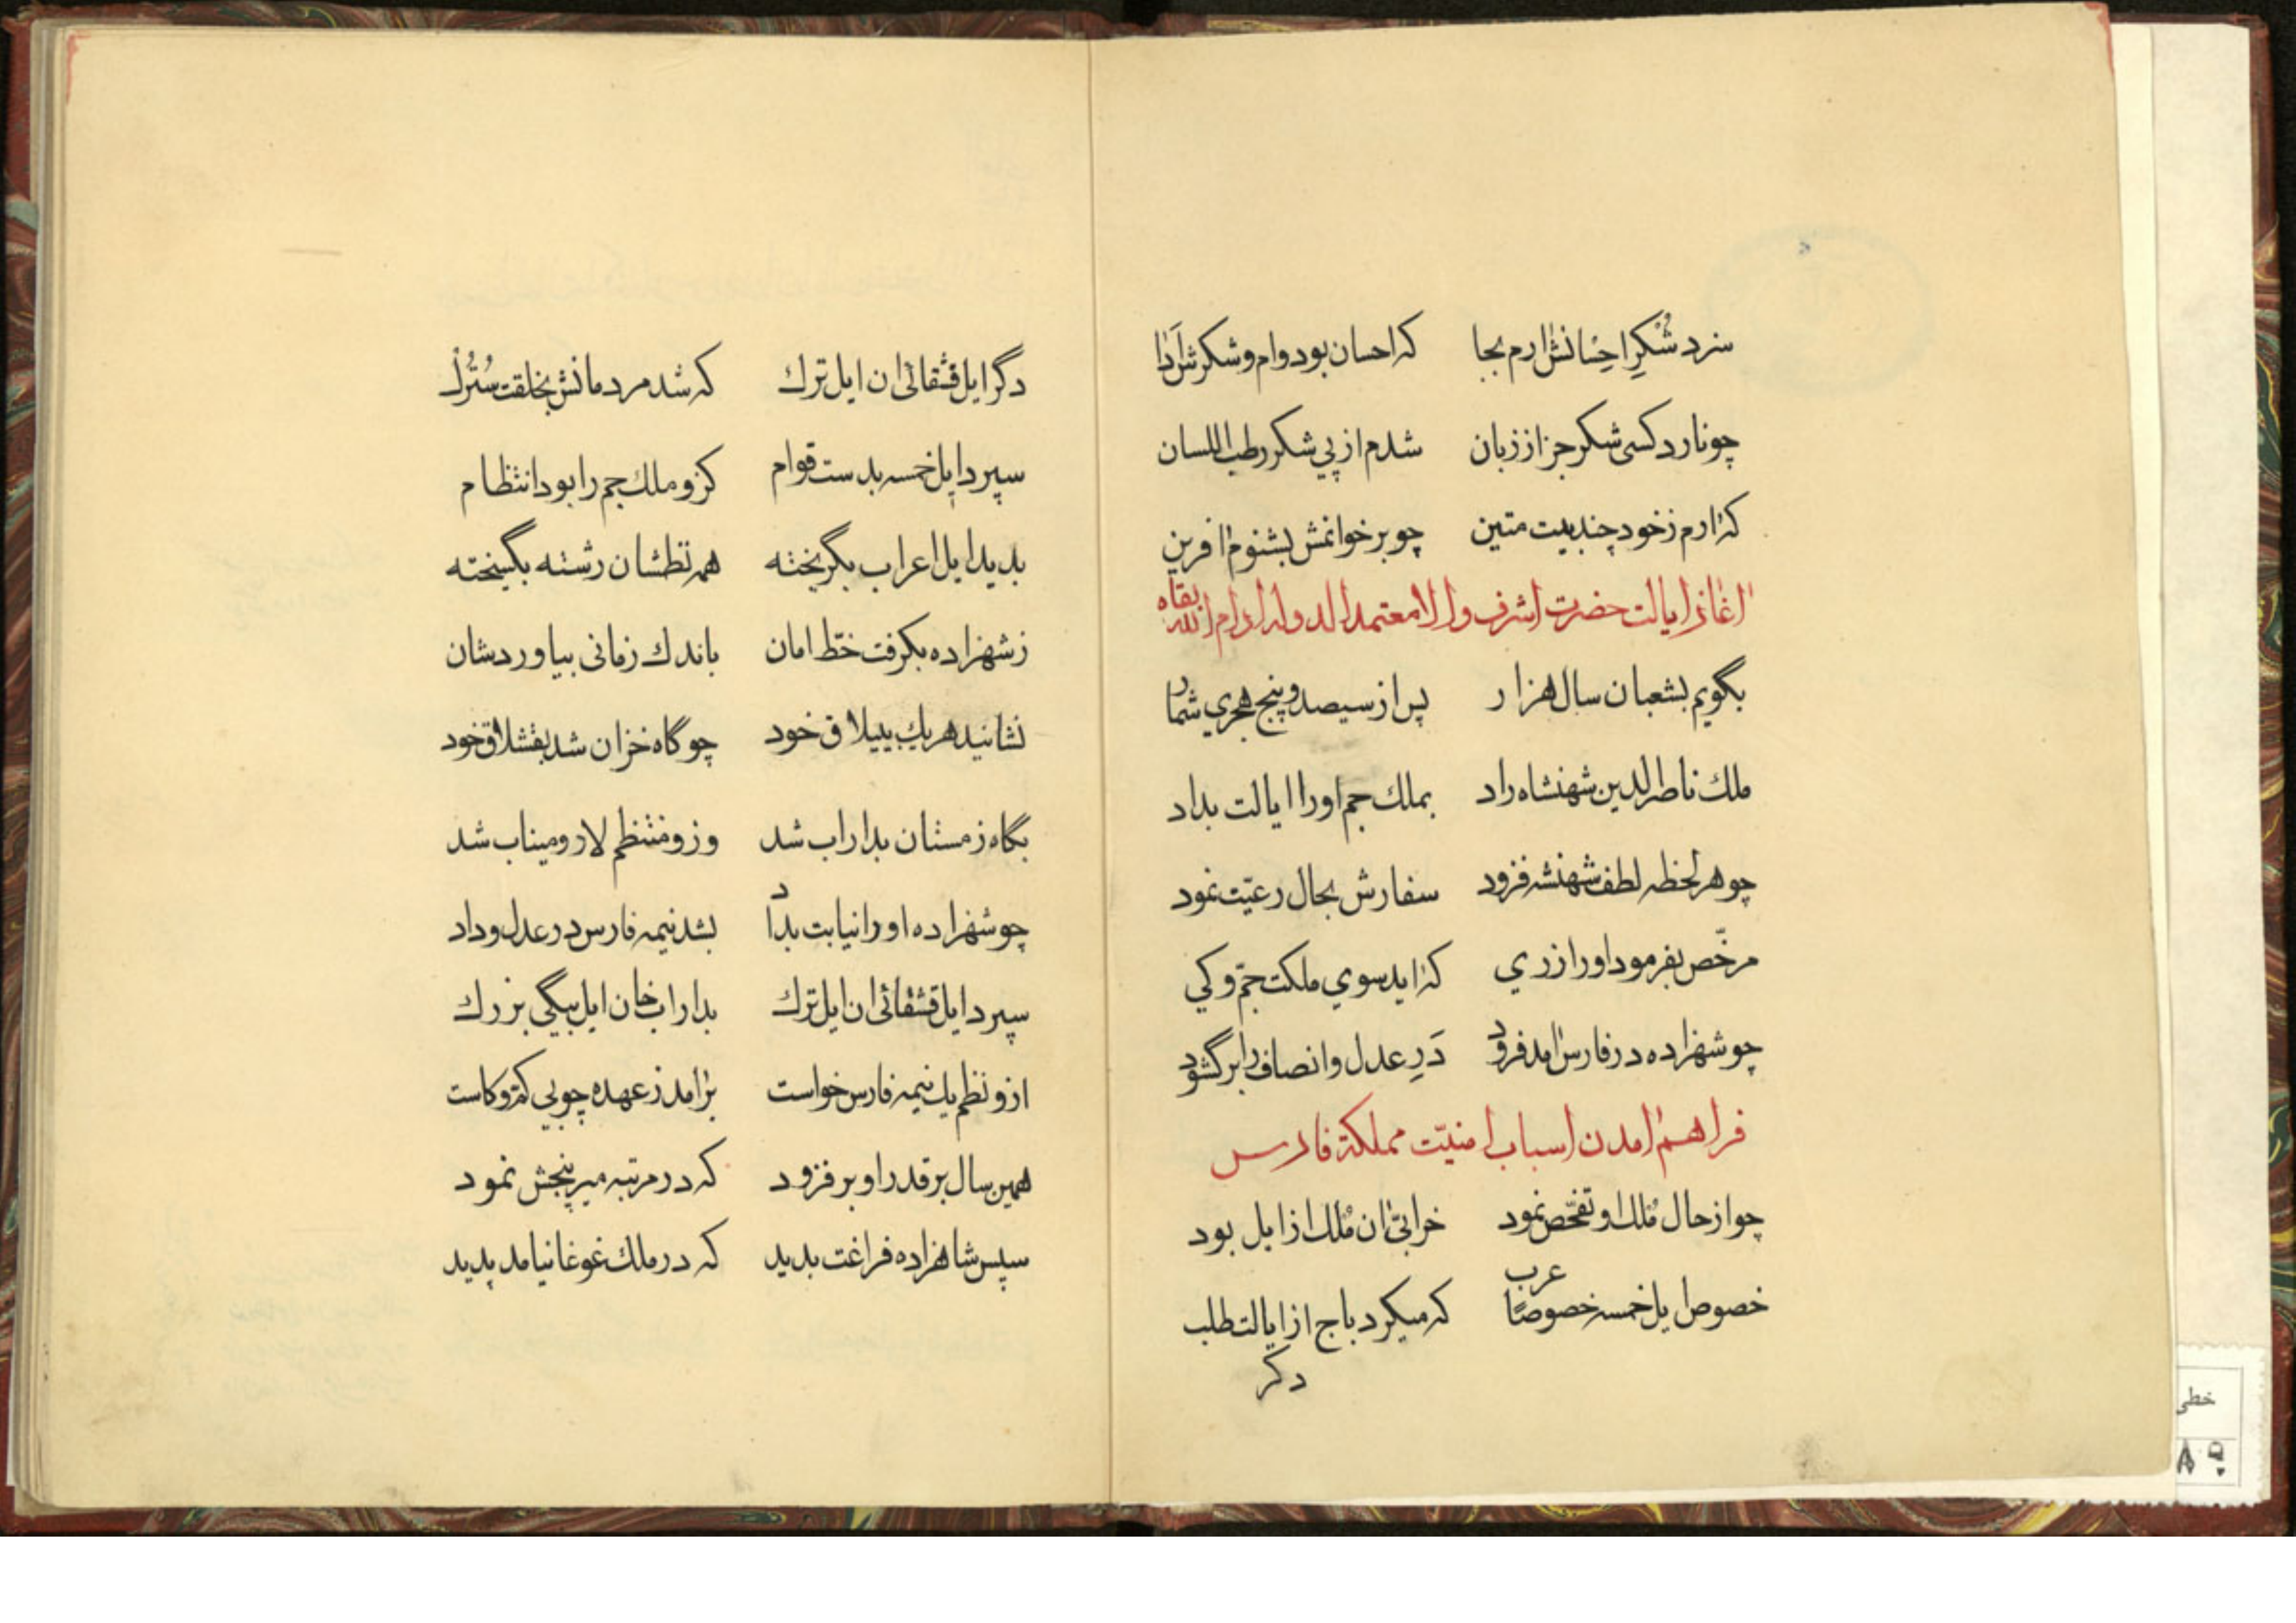 سزد شُکرِ احسانش ارم بجا که احسان بود وام و شکرش اَدا
چو نارد کسی شکر جز از زبان شدم از پی شکر رطب اللسان
که ارم ز خود چند بیت متین چو بر خوانمش بشنوم افرین
اغاز ایالت حضرت اشرف والا معتمد الدوله ادام الله بقاه
بگویم بشعبان سال هزار پس از سیصد و پنج هجری شمار
ملک ناصرالدین شهنشاه راد بملک جم او را ایالت بداد
چو هر لحظه لطف شهنشه فزود سفارش بحال رعیّت نمود
مرخّص بفرمود او را ز ری که اید سوی ملکت جمّ و کی
چو شهزاده در فارس امد فرود دَرِ عدل و انصاف را بر گشود
فراهم امدن اسباب امنیّت مملکة فارس
چو از حال مُلک او تفحّص نمود خرابیّ ان مُلک از ایل بود
خصوص ایل خمسه خصوصًا عرب که میکرد باج از ایالت طلب
دگر
دگر ایل قشقائی ان ایل ترک که شد مردمانش بخلقت سُتُرْک
سپرد ایل خمسه بدست قوام کزو ملک جم را بود انتظام
بدید ایل اعراب بگریخته همه نظمشان رشته بگسیخته
ز شهزاده بگرفت خطّ امان باندک زمانی بیاوردشان
نشانید هر یک بییلاق خود چو گاه خزان شد بقشلاق خود
بگاه زمستان بداراب شد وزو منتظم لار و میناب شد
چو شهزاده او را نیابت بداد بشد نیمه فارس در عدل و داد
سپرد ایل قشقائی ان ایل ترک بداراب خان ایل بیگی بزرک
ازو نظم یک نیمه فارس خواست بر امد ز عهده چو بی کمّ و کاست
همین سال بر قدر او بر فزود که در مرتبه میر پنجش نمود
سپس شاهزاده فراغت بدید که در ملک غوغا نیامد پدید
خطی